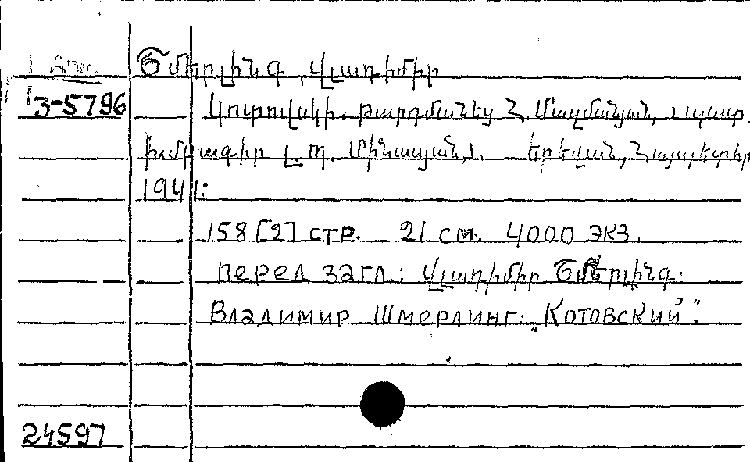 Շմերլինգ, Վլադիմիր
13-5796
Կոտովսկի. թարգմանեց Հ. Մազմանյան, պատ.
խմբագիր Լ. Մինասյան, Երևան, Հայպետհր
1941:
158 [2] стр. 21 см. 4000 экз.
перед загл.: Վլադիմիր Շմերլինգ:
Владимир Шмерлинг: „Котовский".
24597